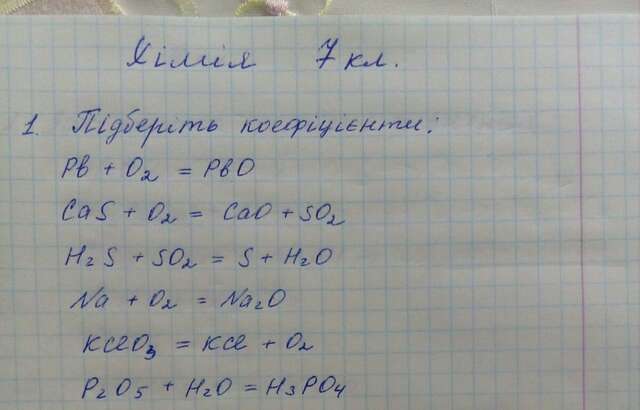 Хімія 7 кл.
1. Підберіть коефіцієнти:
Pb + O₂ = PbO
CaS + O₂ = CaO + SO₂
H₂S + SO₂ = S + H₂O
Na + O₂ = Na₂O
KClO₃ = KCl + O₂
P₂O₅ + H₂O = H₃PO₄